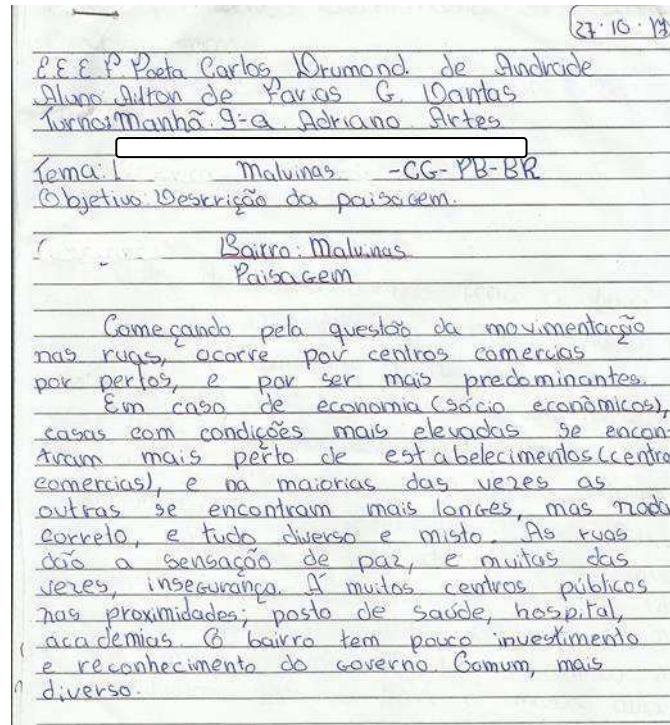 27.10.17
E.E.E.P. Poeta Carlos Drumond. de Andrade
Aluno: Ailton de Farias G. Dantas
Turno: Manhã. 9-a. Adriano Artes
Tema: Malvinas -CG-PB-BR
Objetivo: Descrição da paisagem.
Bairro: Malvinas
Paisagem
Começando pela questão da movimentação
nas ruas, ocorre por centros comercias
por pertos, e por ser mais predominantes.
Em caso de economia (sócio econômicos),
casas com condições mais elevadas se encon-
tram mais perto de estabelecimentos (centro
comercias), e na maiorias das vezes as
outras se encontram mais longes, mas nada
correlo, e tudo diverso e misto. As ruas
dão a sensação de paz, e muitas das
vezes, insegurança. A muitos centros públicos
nas proximidades; posto de saúde, hospital,
academias. O bairro tem pouco investimento
e reconhecimento do governo. Comum, mais
diverso.